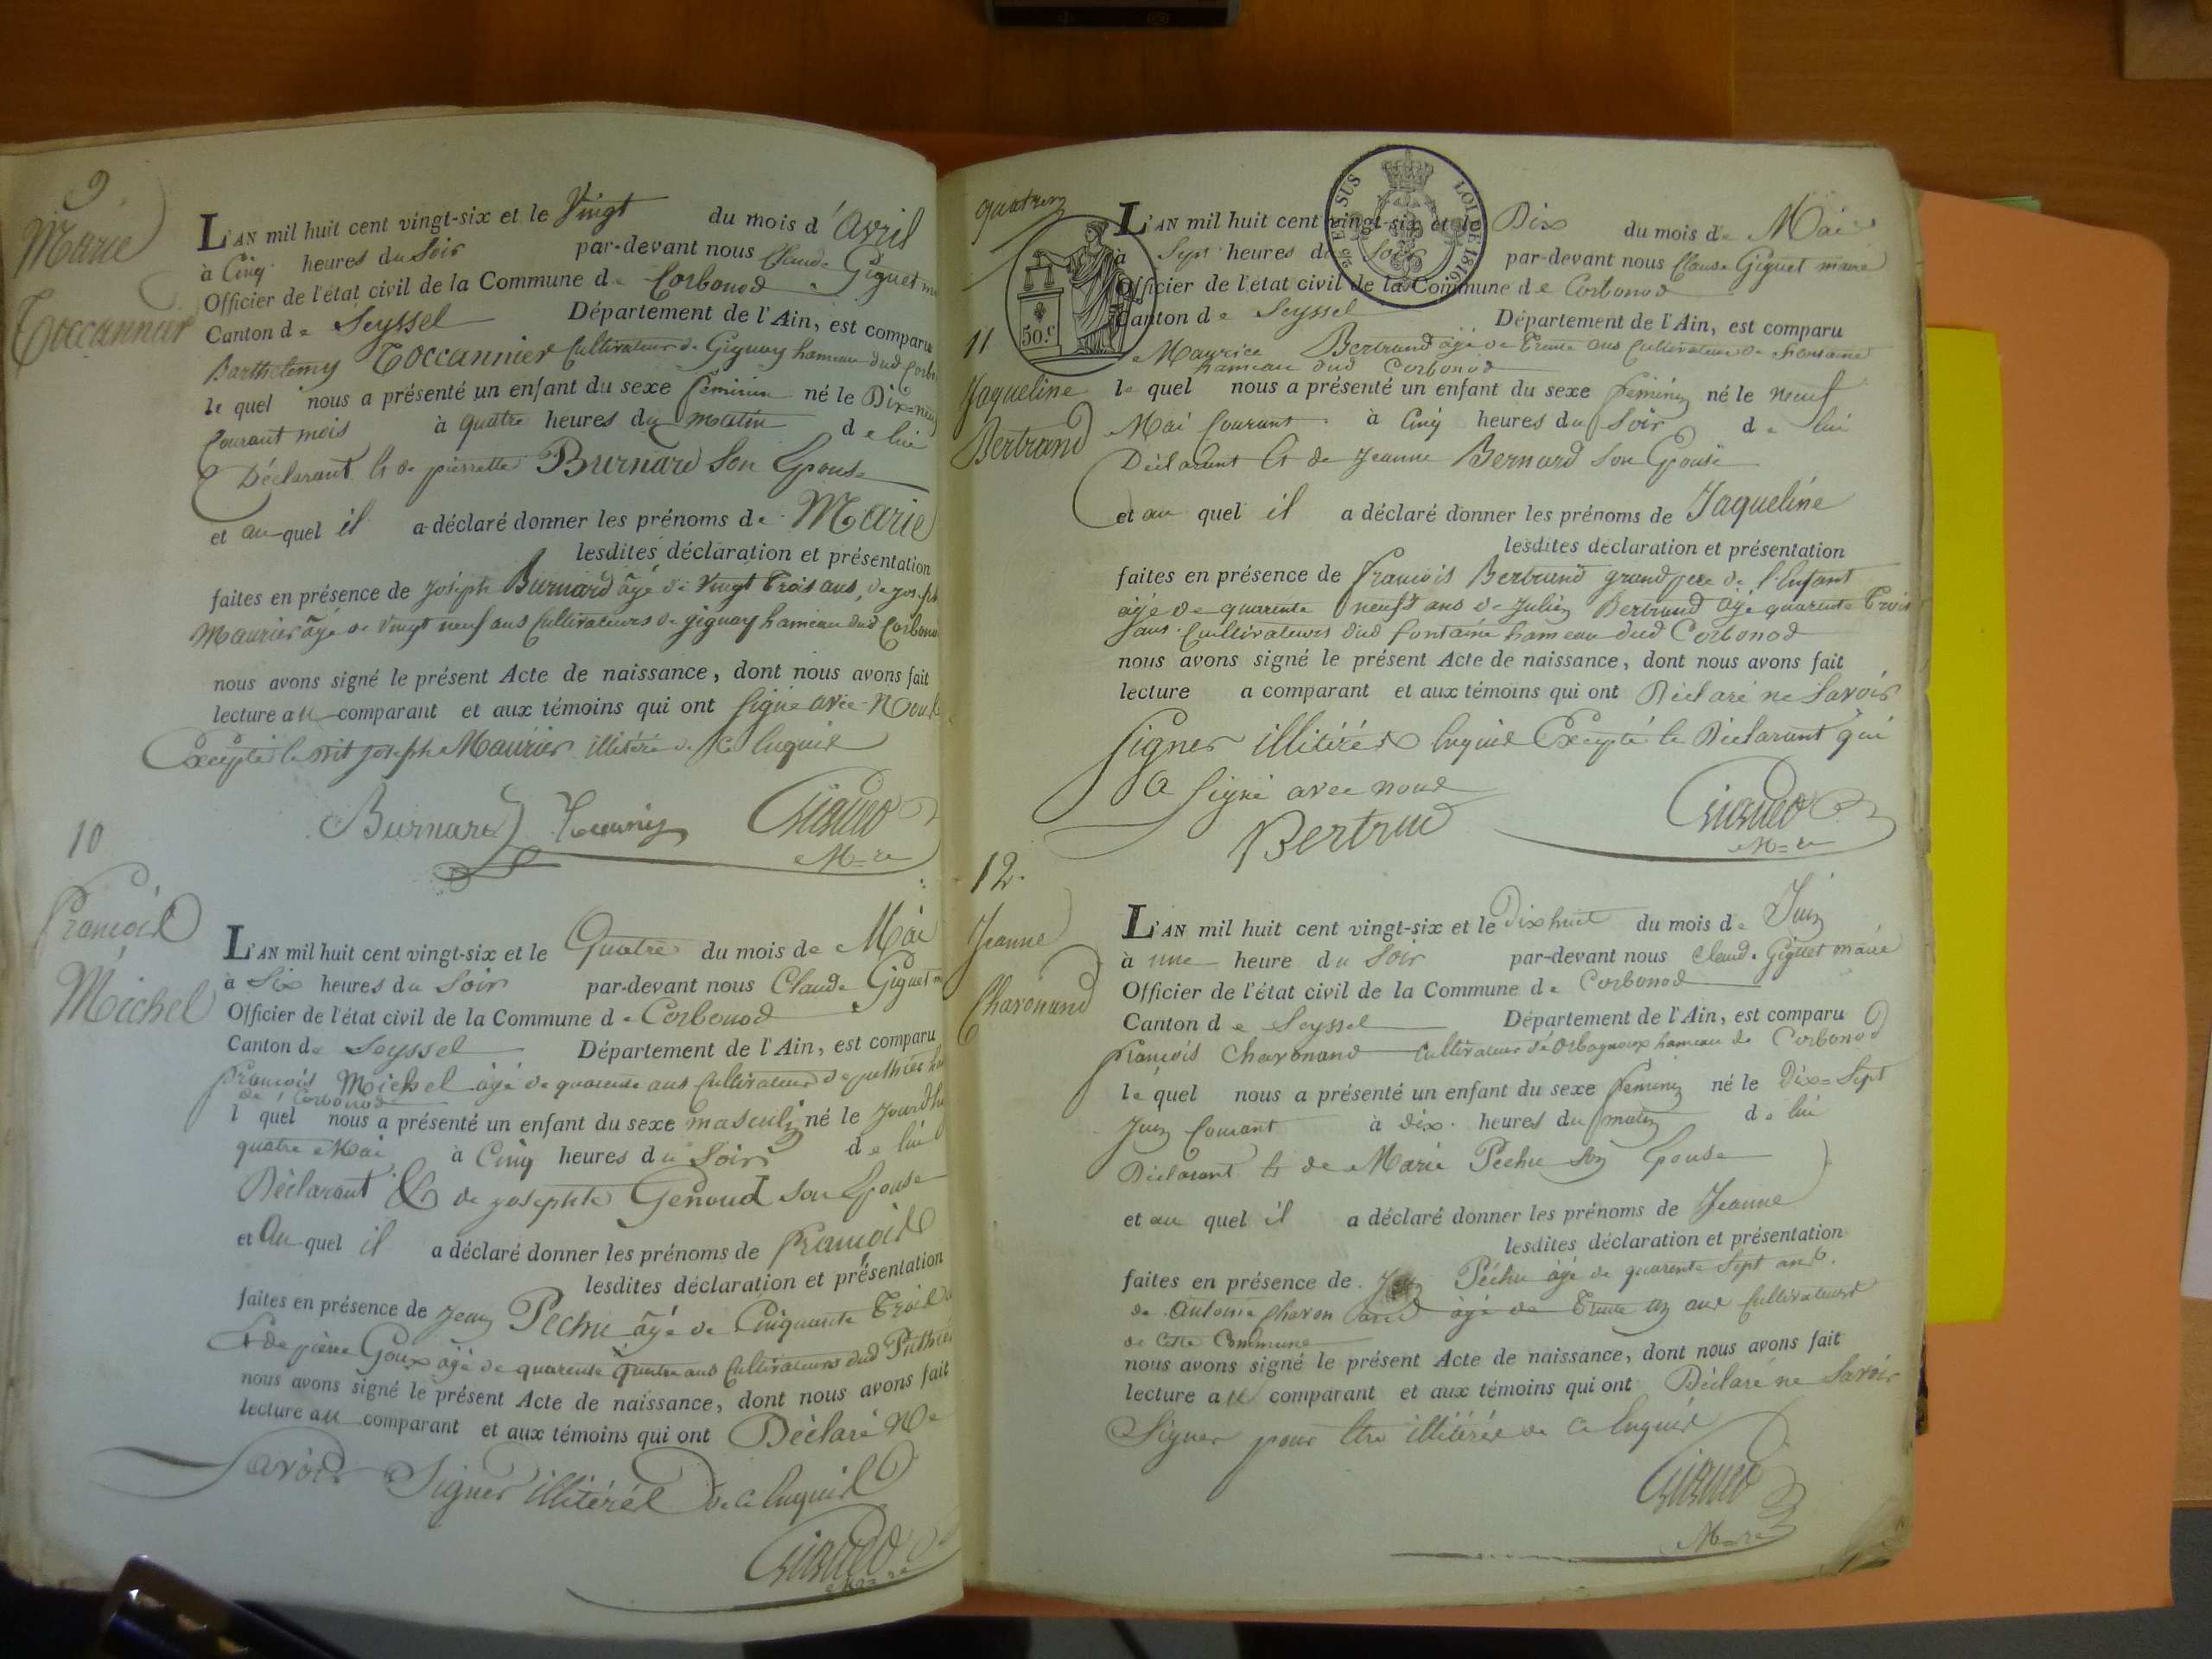 9
Marie
Toccannier
L'AN mil huit cent vingt-six et le Vingt du mois d'Avril
à Cinq heures du Soir par-devant nous Claude Giguet
Officier de l'état civil de la Commune de Corbonod
Canton de Seyssel Département de l'Ain, est comparu
Barthelemy Toccannier Cultivateur de Gignay hameau dud
le quel nous a présenté un enfant du sexe feminin né le Dix=neuf
Courant mois à quatre heures du matin de lui
Déclarant Et de pierrette Burnard Son Epouse
et au quel il a déclaré donner les prénoms de Marie
lesdites déclaration et présentation
faites en présence de joseph Burnard âgé de Vingt Trois ans, de joseph
Maurier âgé de Vingt neuf ans Cultivateurs de gignay hameau dud Corbonod
nous avons signé le présent Acte de naissance, dont nous avons fait
lecture au comparant et aux témoins qui ont Signé avec Nous
Excepté le dit joseph Maurier illitéré de ce Enquis
Burnard Giguet
M=re
10
François
Michel
L'AN mil huit cent vingt-six et le Quatre du mois de Mai
à Six heures du Soir par-devant nous Claude Giguet
Officier de l'état civil de la Commune de Corbonod
Canton de Seyssel Département de l'Ain, est comparu
François Michel âgé de quarente ans Cultivateur de puthier
de Corbonod
l quel nous a présenté un enfant du sexe masculin né le jourdhui
quatre Mai à Cinq heures du Soir de lui
Déclarant & de josephte Genoud son Epouse
et Au quel il a déclaré donner les prénoms de François
lesdites déclaration et présentation
faites en présence de jean Pechu âgé de Cinquante Trois
Et de pierre Goux âgé de quarente quatre ans Cultivateurs dud Puthier
nous avons signé le présent Acte de naissance, dont nous avons fait
lecture au comparant et aux témoins qui ont Déclaré Ne
Savoir Signer illitérés de ce Enquis
Giguet
quatren
25 EN SUS LOI DE 1816.
50 c.
11
Jaqueline
Bertrand
L'AN mil huit cent vingt-six et le Dix du mois de Mai
à Sept heures du Soir par-devant nous Claude Giguet maire
Officier de l'état civil de la Commune de Corbonod
Canton de Seyssel Département de l'Ain, est comparu
Maurice Bertrand âgé de Trente ans Cultivateur de Fontaine
hameau dud Corbonod
le quel nous a présenté un enfant du sexe feminin né le neuf
Mai Courant à Cinq heures du Soir de lui
Déclarant Et de Jeanne Bernard Son Epouse
et au quel il a déclaré donner les prénoms de Jaqueline
lesdites déclaration et présentation
faites en présence de François Bertrand grand pere de l'Enfant
âgé de quarente neuf ans de Julien Bertrand âgé quarente Trois
ans Cultivateurs dud fontaine hameau dud Corbonod
nous avons signé le présent Acte de naissance, dont nous avons fait
lecture a comparant et aux témoins qui ont Déclaré ne Savoir
Signer illitérés Enquis Excepté le Déclarant qui
a Signé avec nous
Bertrand Giguet
M=re
12.
Jeanne
Charonand
L'AN mil huit cent vingt-six et le Dix huit du mois de Juin
à une heure du Soir par-devant nous Claude Giguet maire
Officier de l'état civil de la Commune de Corbonod
Canton de Seyssel Département de l'Ain, est comparu
François Charonand Cultivateur d'Orbagnoux hameau de Corbonod
le quel nous a présenté un enfant du sexe feminin né le Dix=Sept
Juin Courant à dix heures du matin de lui
Déclarant Et de Marie Pechu son Epouse
et au quel il a déclaré donner les prénoms de Jeanne
lesdites déclaration et présentation
faites en présence de Péchu âgé de quarente Sept ans
de Antoine Charonand âgé de Trente un ans Cultivateurs
de Cette Commune
nous avons signé le présent Acte de naissance, dont nous avons fait
lecture au comparant et aux témoins qui ont Déclaré ne Savoir
Signer pour Etre illitérés de Ce Enquis
Giguet
M=re